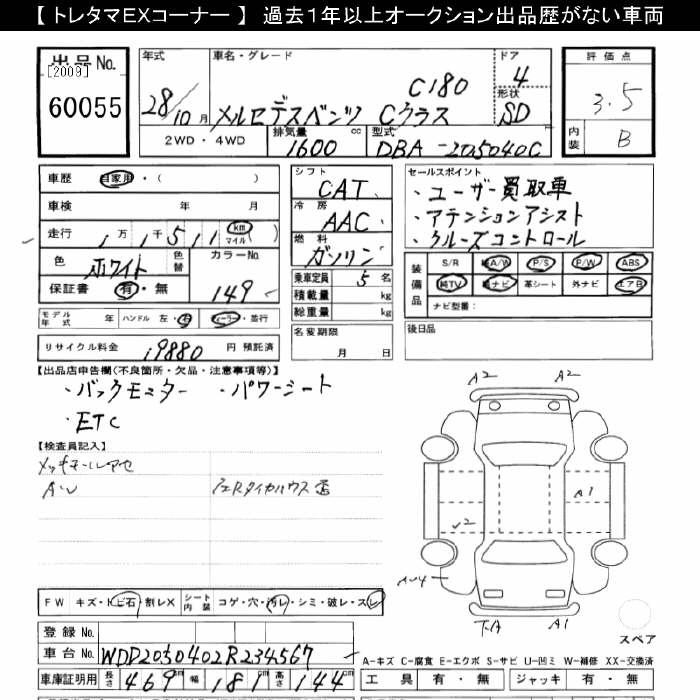 【 トレタマEXコーナー 】 過去1年以上オークション出品歴がない車両
出品 No. [2009] 60055
年式 28/10 月
車名・グレード メルセデスベンツ Cクラス C180
ドア 4
形状 SD
評価点 3.5
内装 B
2WD・4WD
排気量 1600 cc
型式 DBA-205040C
車歴 自家用・( )
車検 年 月
走行 1万1千511 km マイル ( )
色 ホワイト 色替 カラーNo. 149
保証書 有・無
モデル年式 年 ハンドル 左・右 ディーラー・並行
リサイクル料金 19880 円 預託済
シフト CAT
冷房 AAC
燃料 ガソリン
乗車定員 5 名
積載量 kg
総重量 kg
名変期限 月 日
セールスポイント
・ユーザー買取車
・アテンションアシスト
・クルーズコントロール
装備品 S/R A/W P/S P/W ABS
純TV 純ナビ 革シート 外ナビ エアB
ナビ型番:
後日品
【出品店申告欄(不良箇所・欠品・注意事項等)】
・バックモニター ・パワーシート
・ETC
【検査員記入】
A・U
A2 A2
A1
A1
F W キズ・トビ石・割レX シート内装 コゲ・穴・汚レ・シミ・破レ・スレ
登録 No.
車台 No. WDD2050402R234567
車庫証明用 長さ 469 cm 幅 181 cm 高さ 144 cm
スペア
A-キズ C-腐食 E-エクボ S-サビ U-凹ミ W-補修 XX-交換済
工具 有・無 ジャッキ 有・無